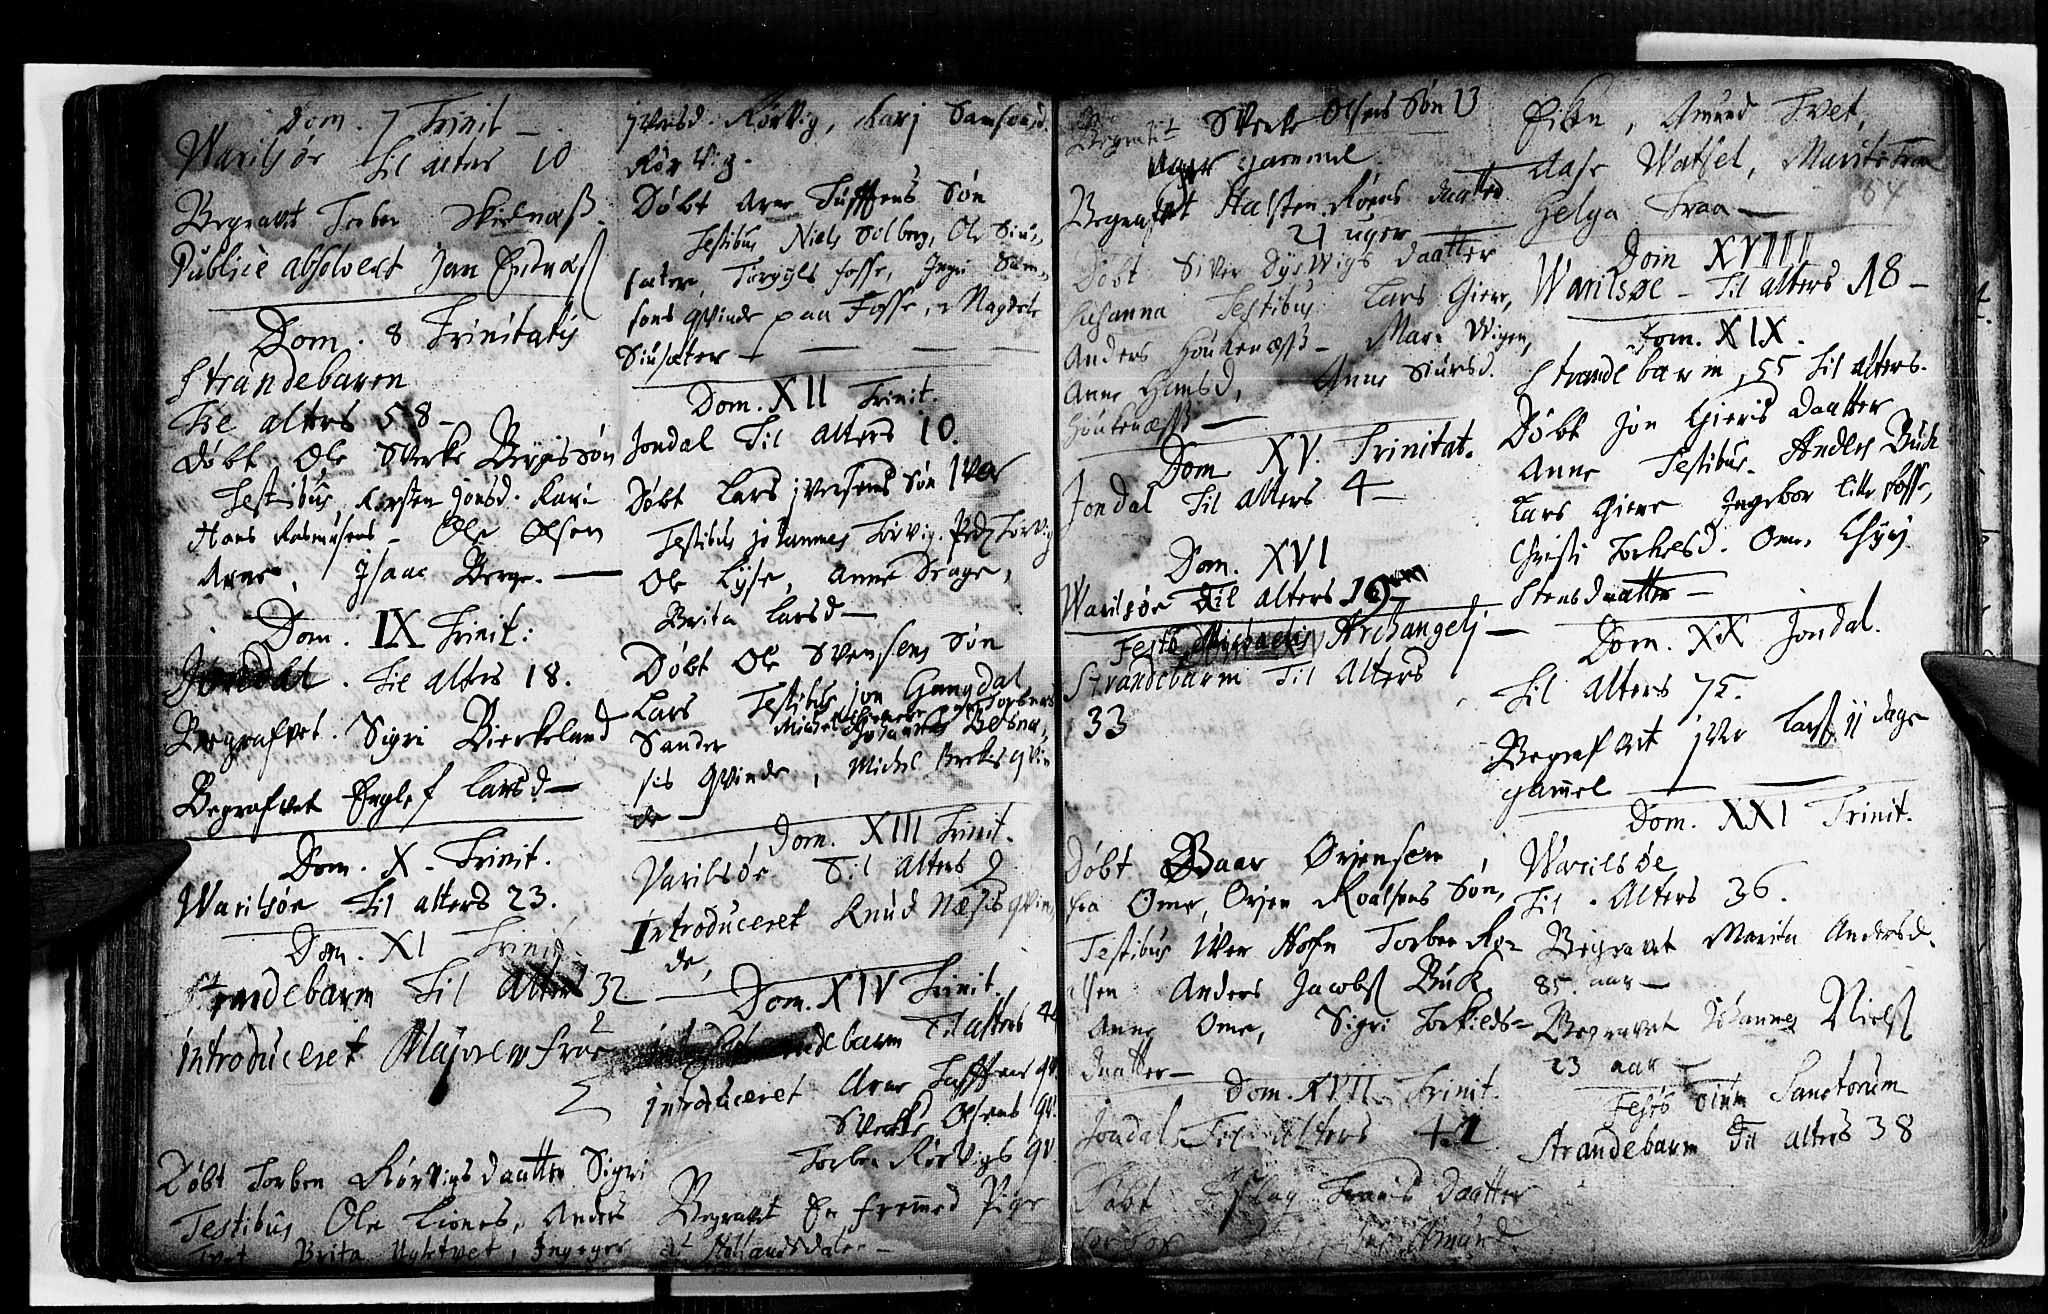 Dom. 7 Trinit
Warilsøe til alters 10
Begravet Torber Skielnæss
Publice absolvert Jan Eidnæss
Dom. 8 Trinitatis
Strandebarm
Til alters 58
Døbt Ole Sverke Børgis søn
Testibus, Kirsten Jonsd. Kari
Hans Rasmusens Ole Olsen
Arne, Isaac Berge.
Dom. IX Trinit:
Jondal. Til alters 18.
Begrafvet. Sigri Bierkeland
Begrafvet Englef Larsd
Dom. X. Trinit.
Warilsøe Til alters 23.
Dom. XI Trinit
Strandebarm Til Alters 32
introduceret
Døbt Torben Rørvigs daatter Sigri
Testibus Ole Liones, Anders
Tvet Brita Nyketvet, Ingeger
Iversd. Rørvig, Karj Samsonsd.
Rørvig.
Døbt Arne Tufftens Søn
Testibus Niels Solberg, Ole Siu-
sæter, Torgyls fosse, Ingri Sam-
sons qvinde paa Fosse, Magdele
Siusæter
Dom. XII Trinit.
Jondal Til alters 10.
Døbt Lars Iversens Søn Iver
Testibus Johannes Torvig. Peder Torvig
Ole Lyse, Anne Drage,
Brita Larsd
Døbt Ole Svensens Søn
Lars Testibus Jon Gangdal
Sander Johannes Besna-
sis qvinde, Michel Brekes qvin
de
Dom. XIII Trinit.
Varilsøe Til alters 9
Introduceret Knud Næsis qvin
de,
Dom. XIV Trinit.
Strandebarm Til alters 4
introduceret Arne Tufftens qv.
Sverke Olsens qv.
Torben Rørvigs qv
Begravet En fremmed Pige
Hollandsdalen
Begrafvet Sverke Olsens Søn 13
Uger gammel.
Begrafvet Halsten Røens daatter
21 uger
Døbt Siver Dysvigs daatter
Susanna Testibus Lars Giere,
Anders Houkenæss Mari Wigen,
Anne Hansd, Anne Siursd.
Houkenæss
Dom XV. Trinitat.
Jondal Til alters 4
Dom. XVI
Warilsøe Til alters 19
Festo Michaelis Archangelj
Strandebarm Til Alters
33
Døbt Baar Orjensen,
fra Ome, Orjen Roalsens Søn,
Testibus Iver Hofn Torben Ro-
alsen Anders Jacobss Buk,
Anne Ome, Sigri Torkields-
daatter
Dom. XVII Trinit.
Jondal, Til alters 41
Døbt Aslag Traais daatter
Testibus Amund
Eiken, Amund Tvet,
Aase Watsel, Marite Traa
84
Helga Traa
Dom XVIII
Warilsøe Til alters 18
Dom. XIX.
Strandebarm, 55 Til alters.
Døbt Jon Gieris Daatter
Anne Testibus Anders Buch
Lars Giere Ingebor Lille fosse,
Christi Torkelsd. Ome,
Stensdaatter
Dom. XX Jondal.
Til alters 75.
Begrafvet Iver Larss 11 dage
gammel
Dom. XXI Trinit.
Warilsøe
Til Alters 36.
Begravet Marita Andersd.
85. aar
Begravet Johannes Nielss
23 aar
Festo Oium Sanctorum
Strandebarm Til alters 38